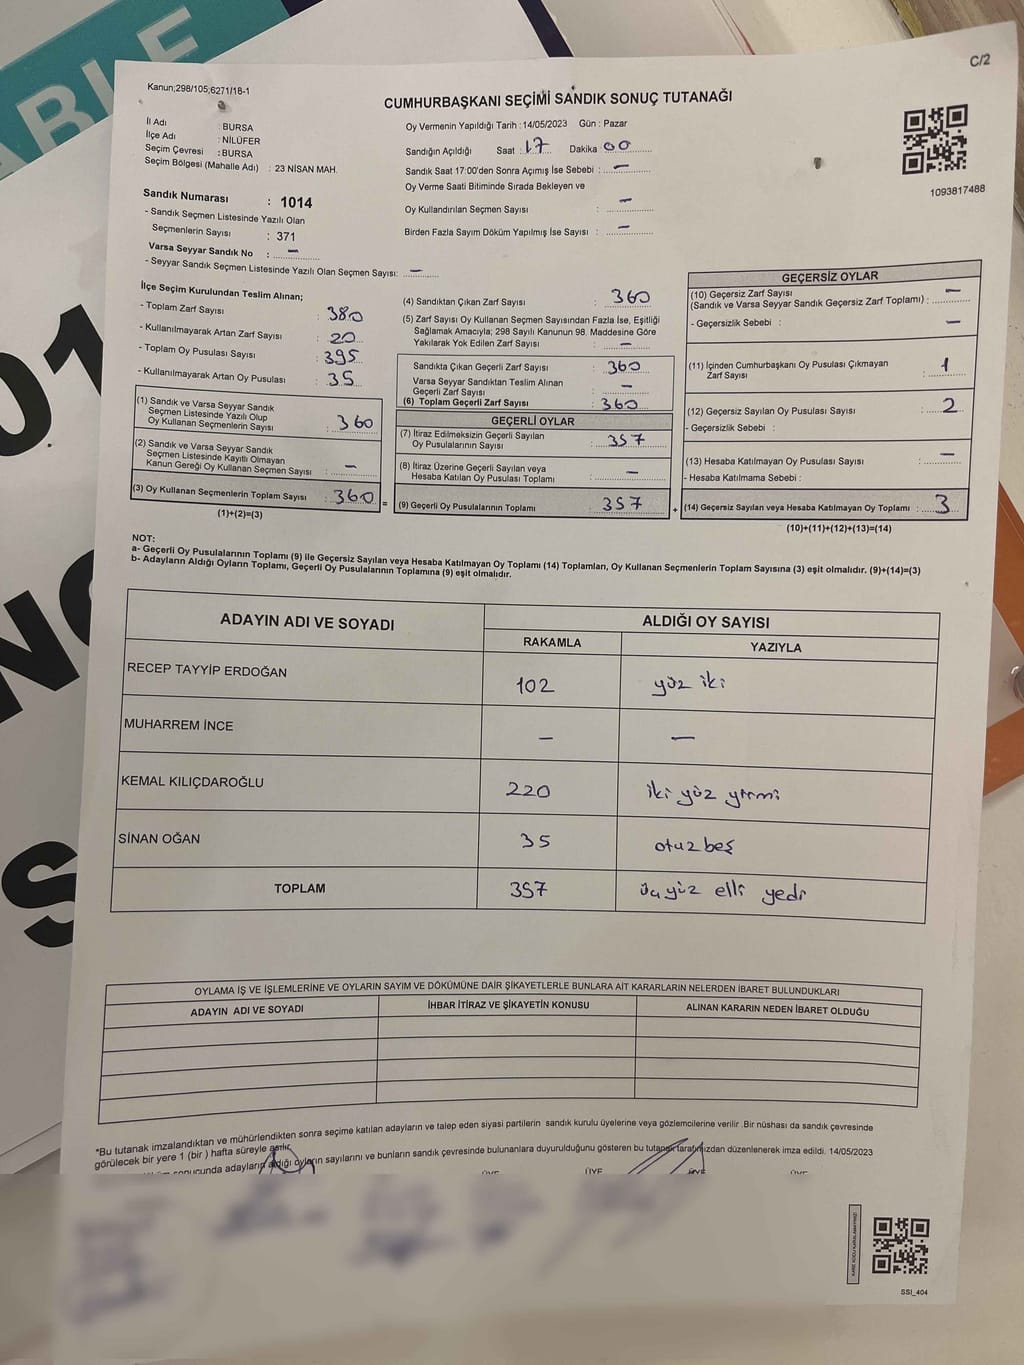 ABLE
01
NO
S
C/2
Kanun;298/105;6271/18-1
CUMHURBAŞKANI SEÇİMİ SANDIK SONUÇ TUTANAĞI
İl Adı : BURSA
İlçe Adı : NİLÜFER
Seçim Çevresi : BURSA
Seçim Bölgesi (Mahalle Adı) : 23 NİSAN MAH.
Oy Vermenin Yapıldığı Tarih : 14/05/2023 Gün : Pazar
Sandığın Açıldığı Saat : 17 Dakika 00
Sandık Saat 17:00'den Sonra Açımış İse Sebebi : —
Oy Verme Saati Bitiminde Sırada Bekleyen ve
Oy Kullandırılan Seçmen Sayısı : —
Birden Fazla Sayım Döküm Yapılmış İse Sayısı : —
1093817488
Sandık Numarası : 1014
- Sandık Seçmen Listesinde Yazılı Olan
Seçmenlerin Sayısı : 371
Varsa Seyyar Sandık No : —
- Seyyar Sandık Seçmen Listesinde Yazılı Olan Seçmen Sayısı: —
İlçe Seçim Kurulundan Teslim Alınan;
- Toplam Zarf Sayısı : 380
- Kullanılmayarak Artan Zarf Sayısı : 20
- Toplam Oy Pusulası Sayısı : 395
- Kullanılmayarak Artan Oy Pusulası : 35
(1) Sandık ve Varsa Seyyar Sandık
Seçmen Listesinde Yazılı Olup
Oy Kullanan Seçmenlerin Sayısı : 360
(2) Sandık ve Varsa Seyyar Sandık
Seçmen Listesinde Kayıtlı Olmayan
Kanun Gereği Oy Kullanan Seçmen Sayısı : —
(3) Oy Kullanan Seçmenlerin Toplam Sayısı : 360
(1)+(2)=(3)
=
(4) Sandıktan Çıkan Zarf Sayısı : 360
(5) Zarf Sayısı Oy Kullanan Seçmen Sayısından Fazla İse, Eşitliği
Sağlamak Amacıyla; 298 Sayılı Kanunun 98. Maddesine Göre
Yakılarak Yok Edilen Zarf Sayısı : —
Sandıkta Çıkan Geçerli Zarf Sayısı : 360
Varsa Seyyar Sandıktan Teslim Alınan
Geçerli Zarf Sayısı : —
(6) Toplam Geçerli Zarf Sayısı : 360
GEÇERLİ OYLAR
(7) İtiraz Edilmeksizin Geçerli Sayılan
Oy Pusulalarının Sayısı : 357
(8) İtiraz Üzerine Geçerli Sayılan veya
Hesaba Katılan Oy Pusulası Toplamı : —
(9) Geçerli Oy Pusulalarının Toplamı : 357
+
GEÇERSİZ OYLAR
(10) Geçersiz Zarf Sayısı —
(Sandık ve Varsa Seyyar Sandık Geçersiz Zarf Toplamı) :
- Geçersizlik Sebebi : —
(11) İçinden Cumhurbaşkanı Oy Pusulası Çıkmayan
Zarf Sayısı : 1
(12) Geçersiz Sayılan Oy Pusulası Sayısı : 2
- Geçersizlik Sebebi :
(13) Hesaba Katılmayan Oy Pusulası Sayısı : —
- Hesaba Katılmama Sebebi :
(14) Geçersiz Sayılan veya Hesaba Katılmayan Oy Toplamı : 3
(10)+(11)+(12)+(13)=(14)
NOT:
a- Geçerli Oy Pusulalarının Toplamı (9) ile Geçersiz Sayılan veya Hesaba Katılmayan Oy Toplamı (14) Toplamları, Oy Kullanan Seçmenlerin Toplam Sayısına (3) eşit olmalıdır. (9)+(14)=(3)
b- Adayların Aldığı Oyların Toplamı, Geçerli Oy Pusulalarının Toplamına (9) eşit olmalıdır.
ADAYIN ADI VE SOYADI ALDIĞI OY SAYISI
RAKAMLA YAZIYLA
RECEP TAYYİP ERDOĞAN 102 yüz iki
MUHARREM İNCE — —
KEMAL KILIÇDAROĞLU 220 iki yüz yirmi
SİNAN OĞAN 35 otuz beş
TOPLAM 357 üç yüz elli yedi
OYLAMA İŞ VE İŞLEMLERİNE VE OYLARIN SAYIM VE DÖKÜMÜNE DAİR ŞİKAYETLERLE BUNLARA AİT KARARLARIN NELERDEN İBARET BULUNDUKLARI
ADAYIN ADI VE SOYADI İHBAR İTİRAZ VE ŞİKAYETİN KONUSU ALINAN KARARIN NEDEN İBARET OLDUĞU
*Bu tutanak imzalandıktan ve mühürlendikten sonra seçime katılan adayların ve talep eden siyasi partilerin sandık kurulu üyelerine veya gözlemcilerine verilir .Bir nüshası da sandık çevresinde
görülecek bir yere 1 (bir ) hafta süreyle asılır.
sonucunda adayların aldığı oyların sayılarını ve bunların sandık çevresinde bulunanlara duyurulduğunu gösteren bu tutanak tarafımızdan düzenlenerek imza edildi. 14/05/2023
ÜYE ÜYE ÜYE ÜYE
SSI_404